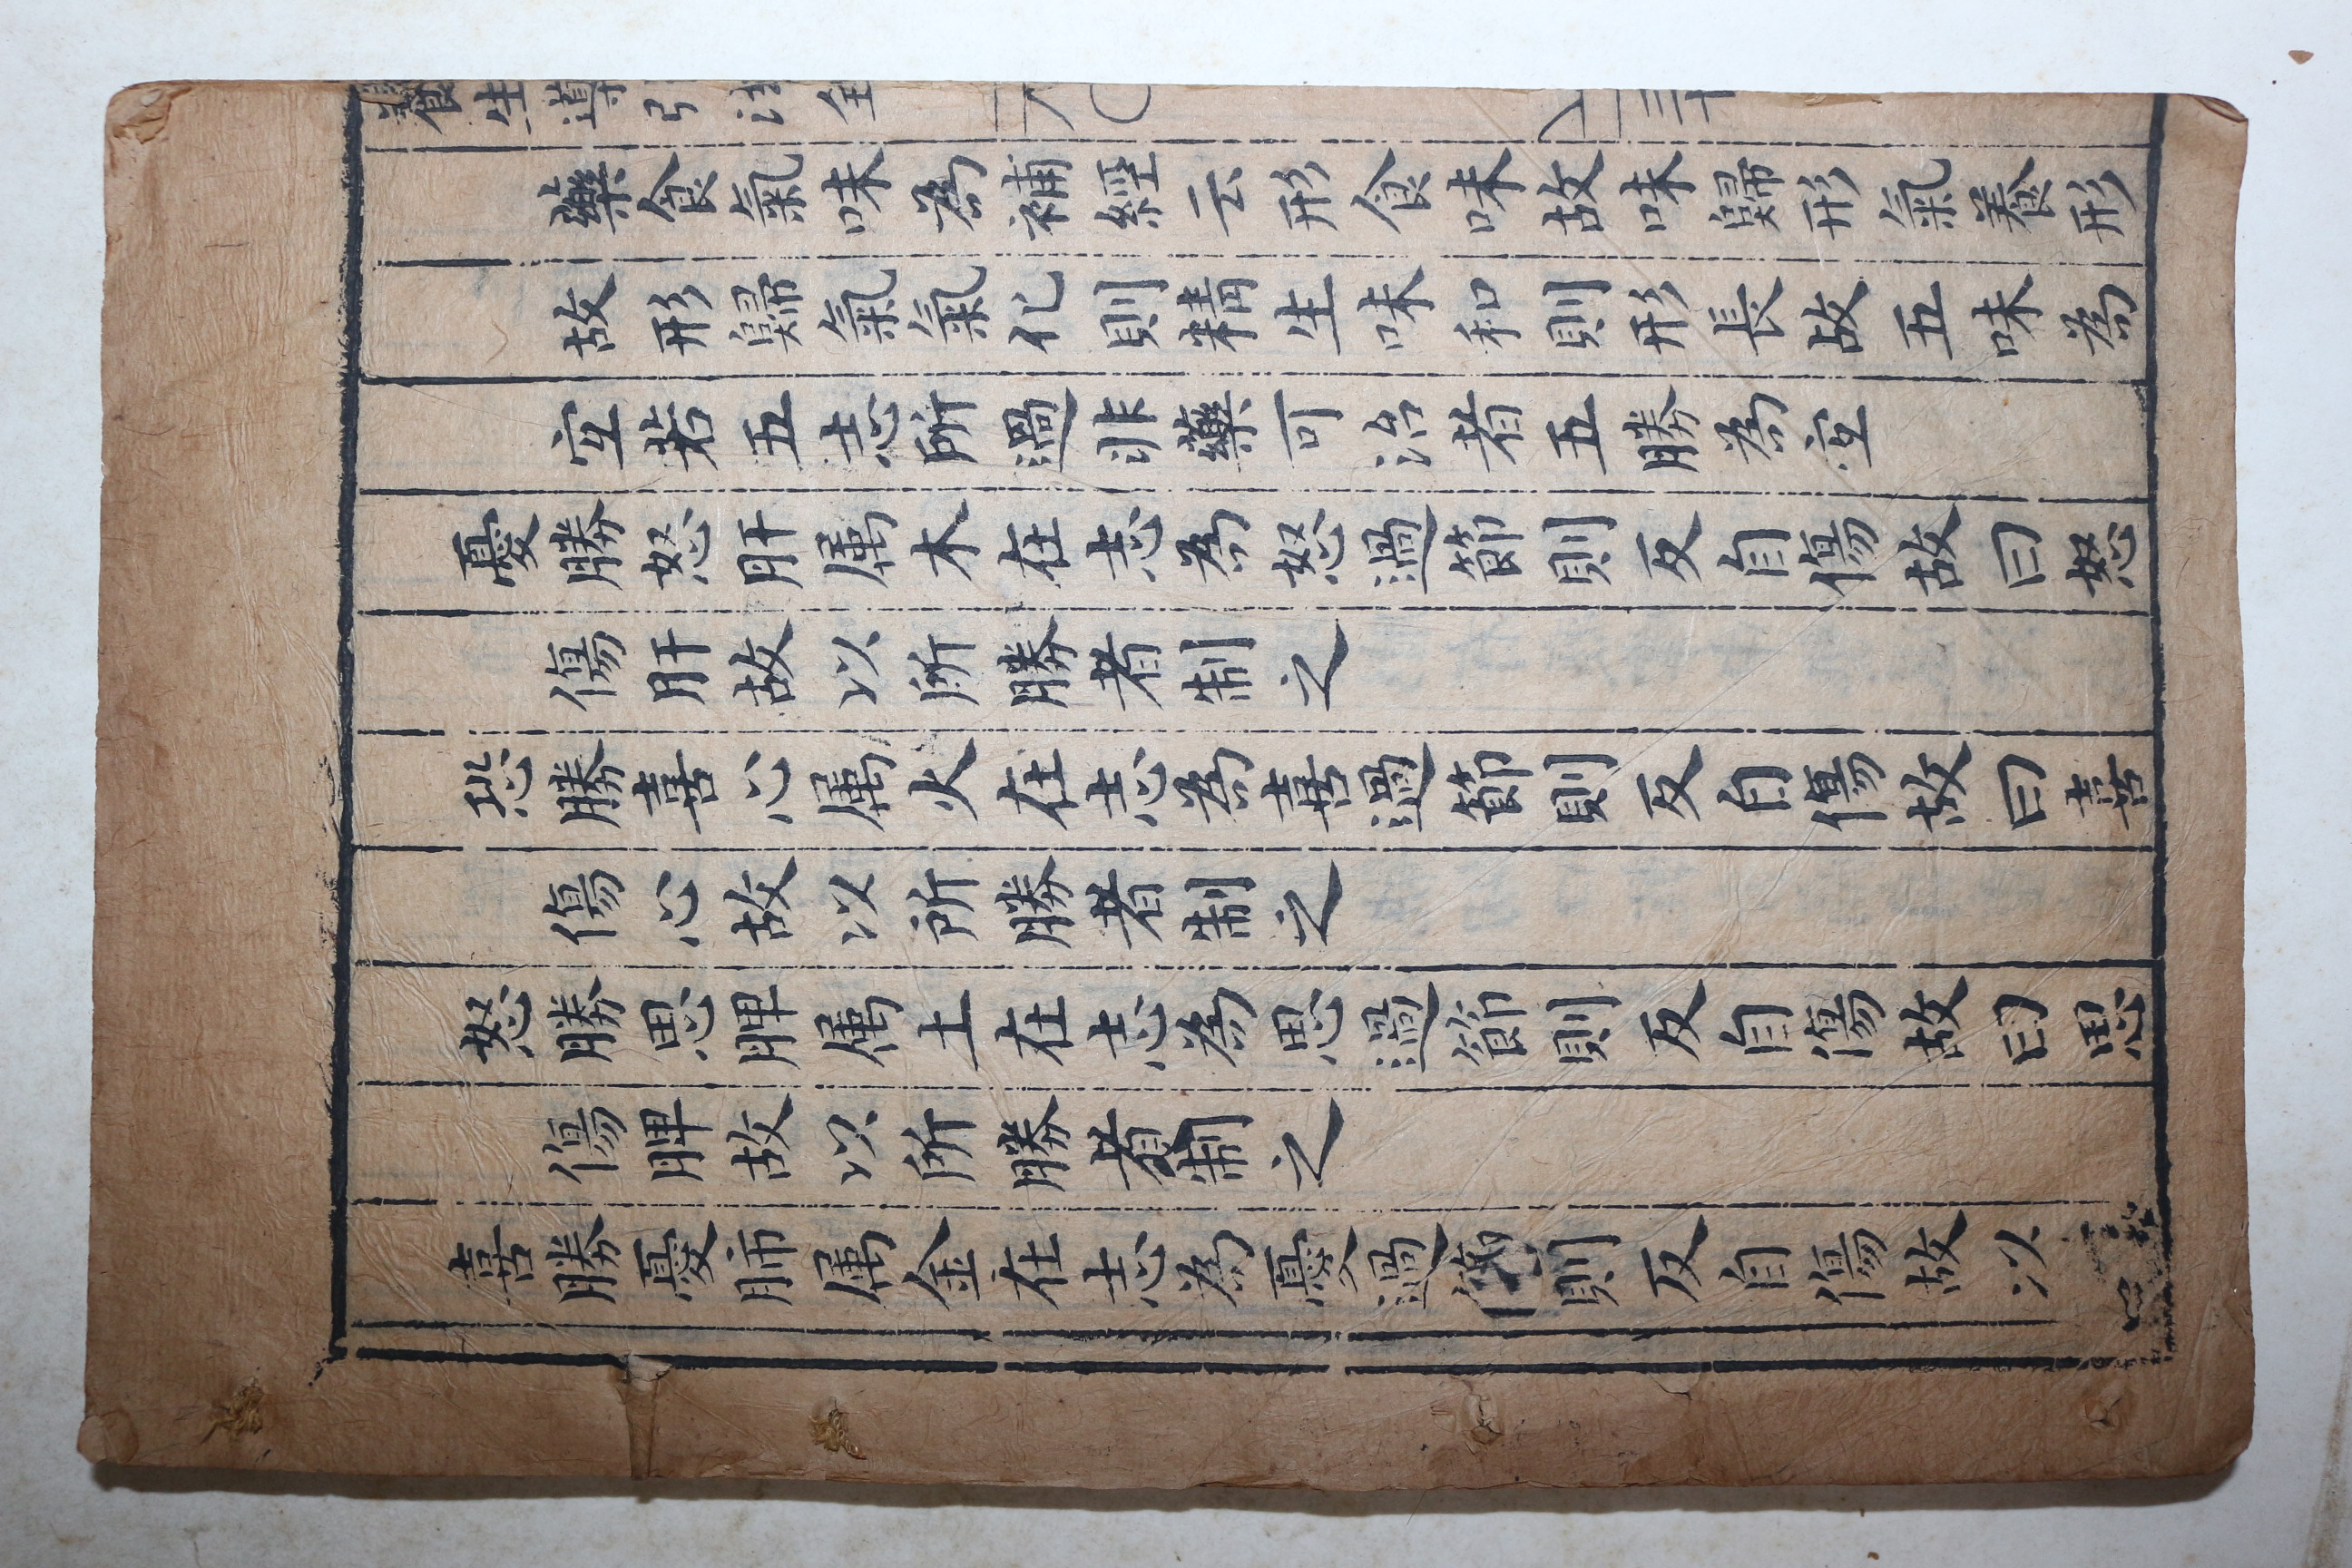 養生導引法
藥食氣味為補經云形食味故味歸形氣養形
故形歸氣氣化則精生味和則形長故五味為
宜若五志所過非藥可治者五勝為宜
憂勝怒肝属木在志為怒過節則反自傷故曰怒
傷肝故以所勝者制之
恐勝喜心属火在志為喜過節則反自傷故曰喜
傷心故以所勝者制之
怒勝思脾属土在志為思過節則反自傷故曰思
傷脾故以所勝者制之
喜勝憂肺属金在志為憂過節則反自傷故以